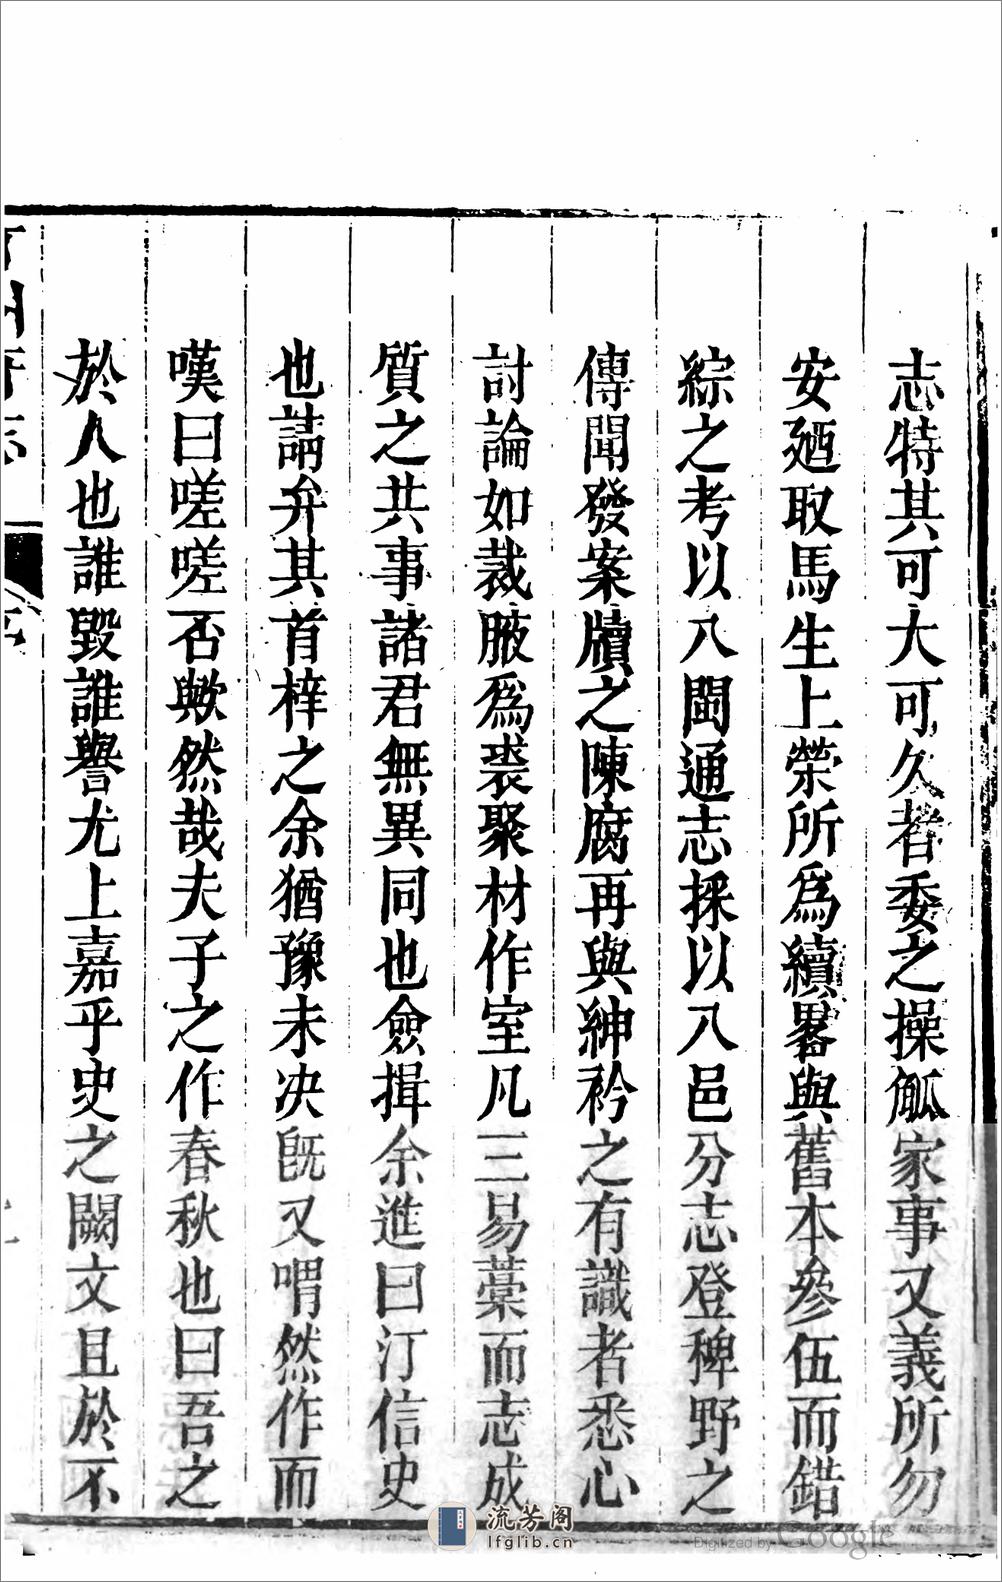 志特其可大可久者委之操觚家事又義所勿
安廼取馬生上榮所為續畧與舊本參伍而錯
綜之考以八閩通志採以八邑分志登稗野之
傳聞發案牘之陳腐再與紳衿之有識者悉心
討論如裁腋爲裘聚材作室凡三易藁而志成
質之共事諸君無異同也僉揖余進曰汀信史
也請弁其首梓之余猶豫未决既又喟然作而
嘆曰嗟嗟否歟然哉夫子之作春秋也曰吾之
於人也誰毀誰譽尤上嘉乎史之闕文且於不
流芳阁
lfglib.cn
Digitized by Google